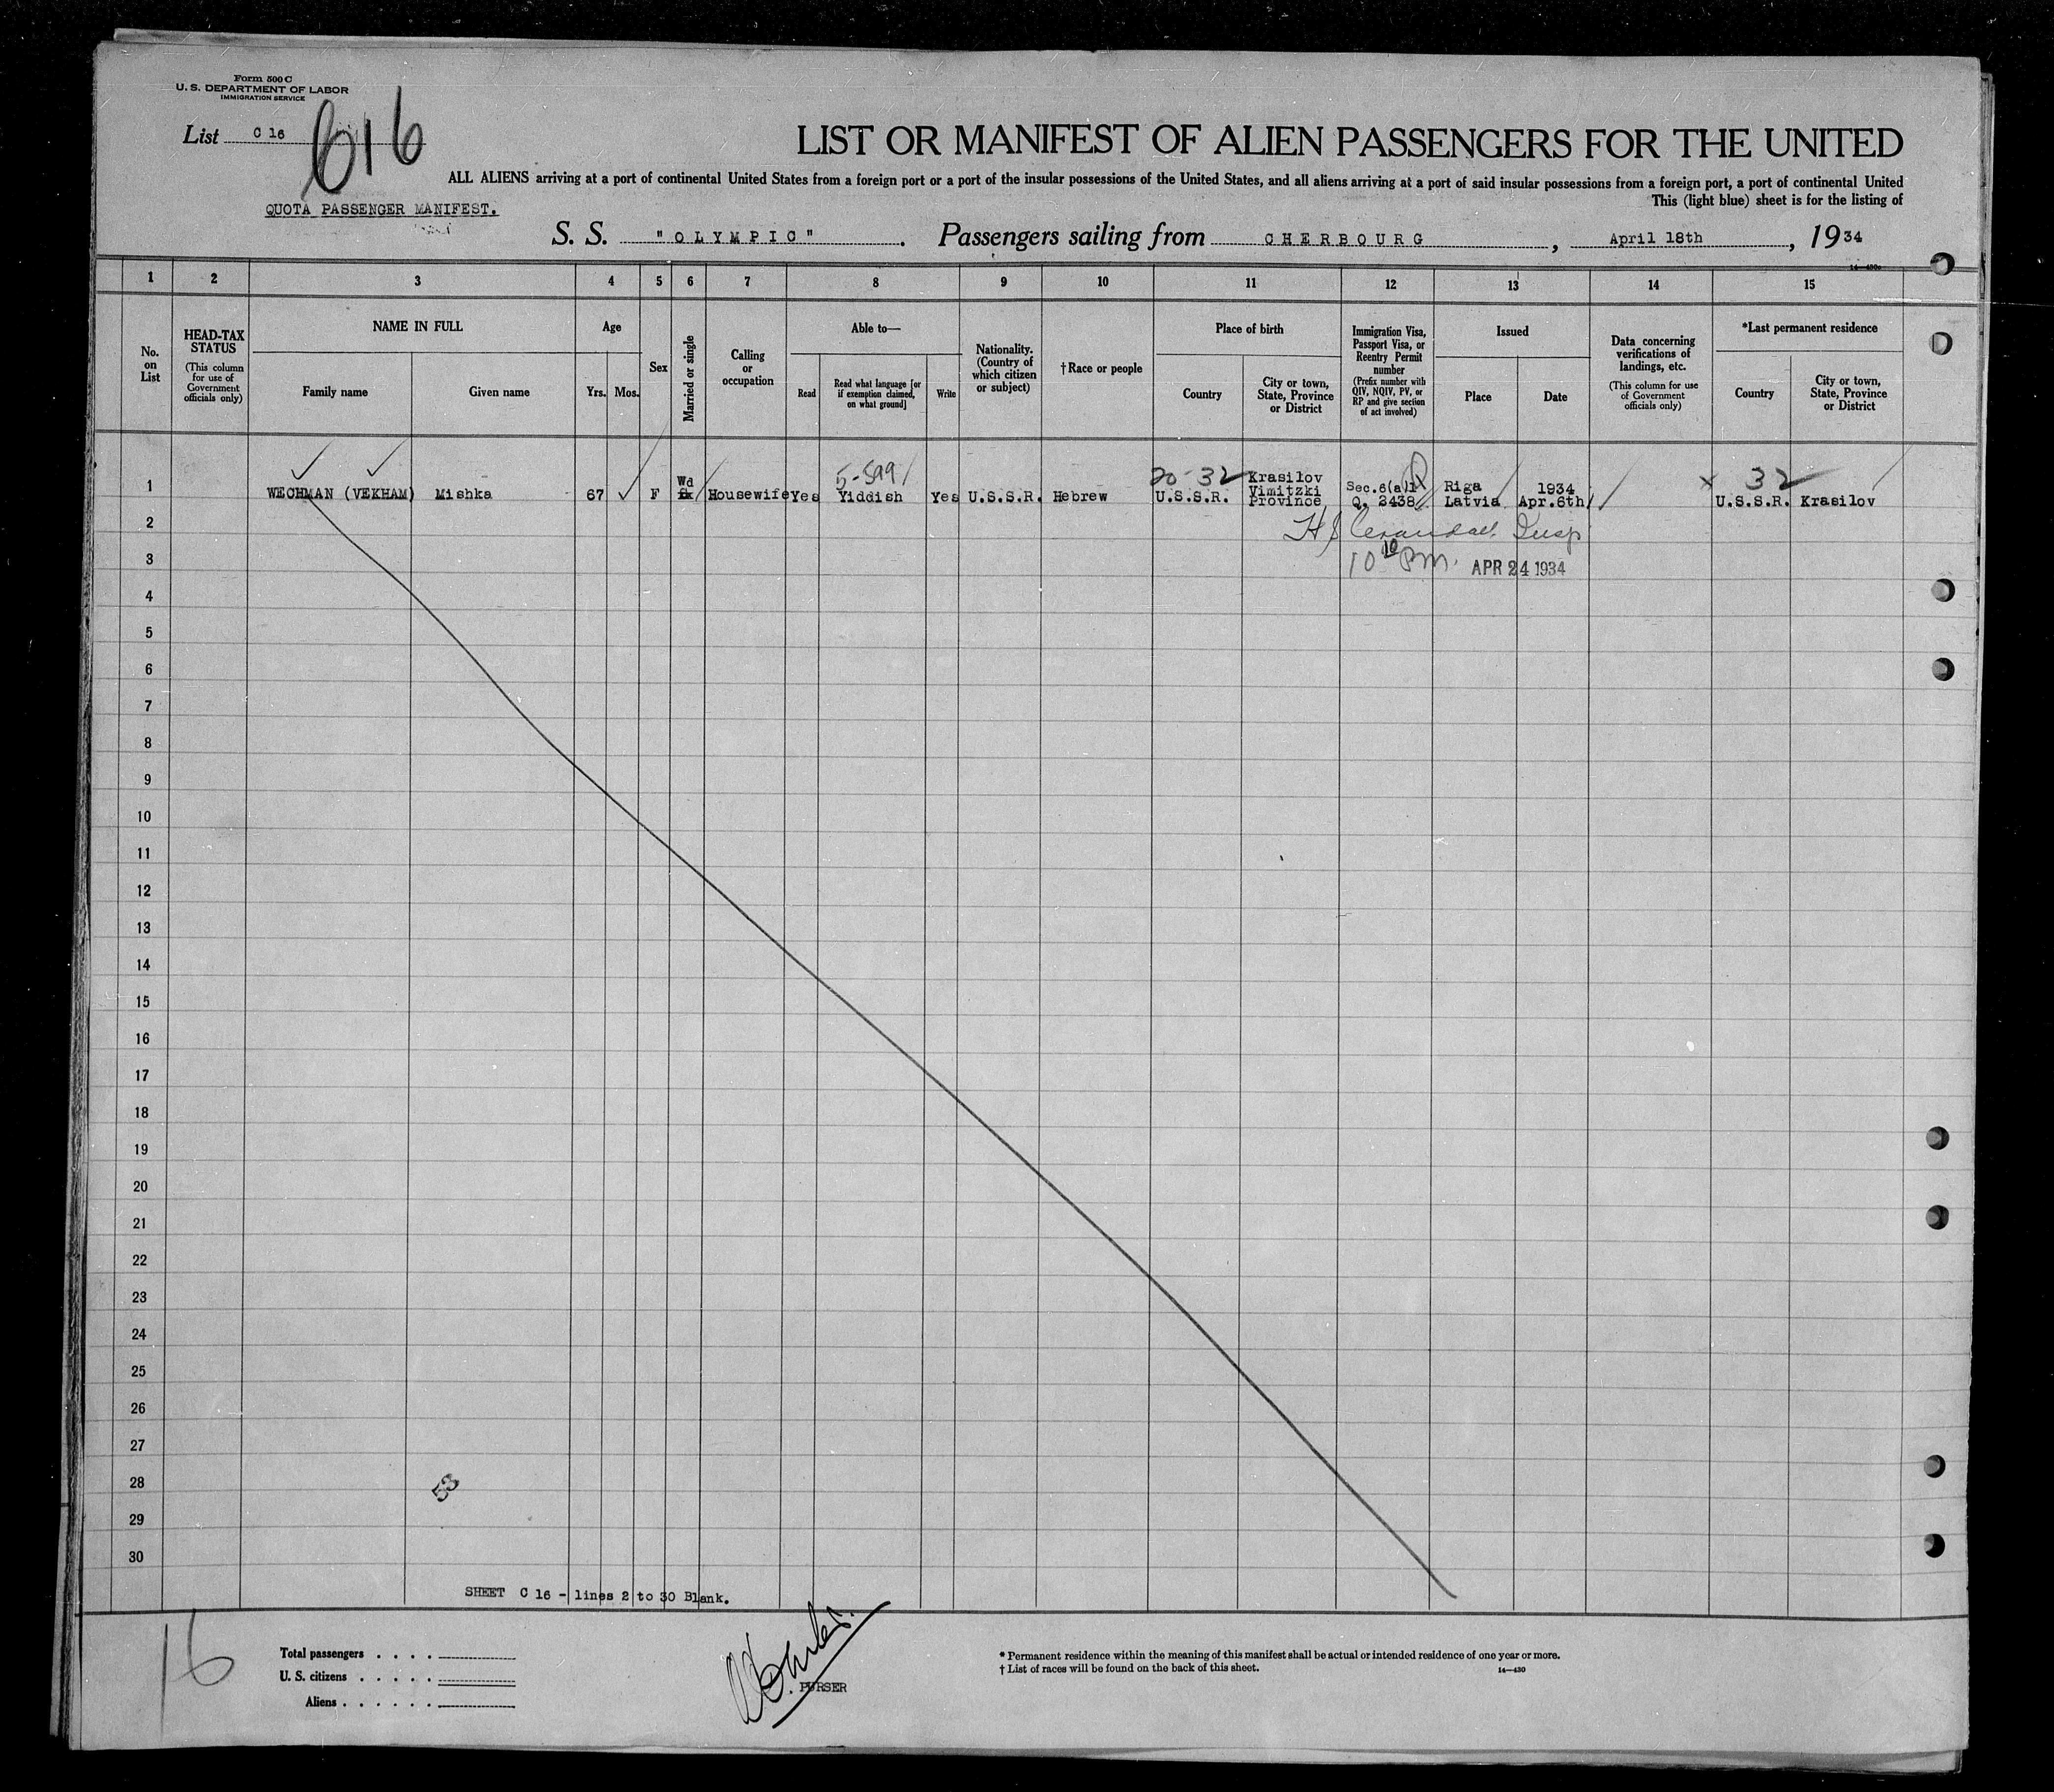 Form 500 C
U. S. DEPARTMENT OF LABOR
IMMIGRATION SERVICE
List C 16
616
LIST OR MANIFEST OF ALIEN PASSENGERS FOR THE UNITED
ALL ALIENS arriving at a port of continental United States from a foreign port or a port of the insular possessions of the United States, and all aliens arriving at a port of said insular possessions from a foreign port, a port of continental United
This (light blue) sheet is for the listing of
QUOTA PASSENGER MANIFEST.
S. S. "OLYMPIC". Passengers sailing from CHERBOURG, April 18th, 1934
1 2 3 4 5 6 7 8 9 10 11 12 13 14 15
No. on List
HEAD-TAX STATUS
(This column for use of Government officials only)
NAME IN FULL
Family name
Given name
Age
Yrs. Mos.
Sex
Married or single
Calling or occupation
Able to—
Read
Read what language [or if exemption claimed, on what ground]
Write
Nationality. (Country of which citizen or subject)
†Race or people
Place of birth
Country
City or town, State, Province or District
Immigration Visa, Passport Visa, or Reentry Permit number
(Prefix number with QIV, NQIV, PV, or RP and give section of act involved)
Issued
Place
Date
Data concerning verifications of landings, etc.
(This column for use of Government officials only)
*Last permanent residence
Country
City or town, State, Province or District
5-599
20-32
32
1 WECHMAN (VEKHAM) Mishka 67 F Wd Housewife Yes Yiddish Yes U.S.S.R. Hebrew U.S.S.R. Krasilov Vimitzki Province Sec.6(a)1 Q. 2438 Riga Latvia 1934 Apr.6th U.S.S.R. Krasilov
2
Insp
3
10 10 Pm. APR 24 1934
4
5
6
7
8
9
10
11
12
13
14
15
16
17
18
19
20
21
22
23
24
25
26
27
28
53
29
30
SHEET C 16 - lines 2 to 30 Blank.
16
Total passengers . . . .
U. S. citizens . . . . .
Aliens . . . . . .
PURSER
* Permanent residence within the meaning of this manifest shall be actual or intended residence of one year or more.
† List of races will be found on the back of this sheet.
14—430